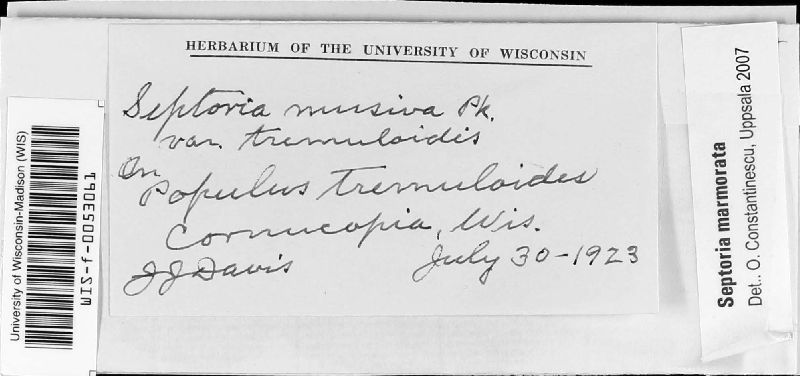 HERBARIUM OF THE UNIVERSITY OF WISCONSIN
Septoria musiva Pk.
var. tremuloidis
On
Populus tremuloides
Cornucopia, Wis.
JJDavis July 30-1923
University of Wisconsin-Madison (WIS)
WIS-f-0053061
Septoria marmorata
Det.. O. Constantinescu, Uppsala 2007